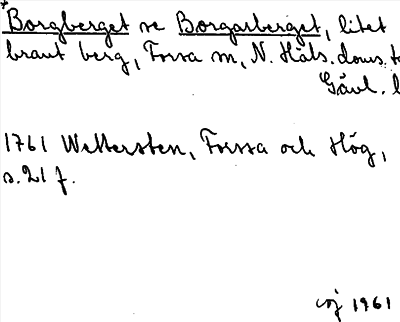 *Borgberget se Borgarberget, litet
brant berg, Forssa sn, N. Häls. doms. t
Gävl. l
1761 Wettersten, Forssa och Hög,
s. 21 f.
1961